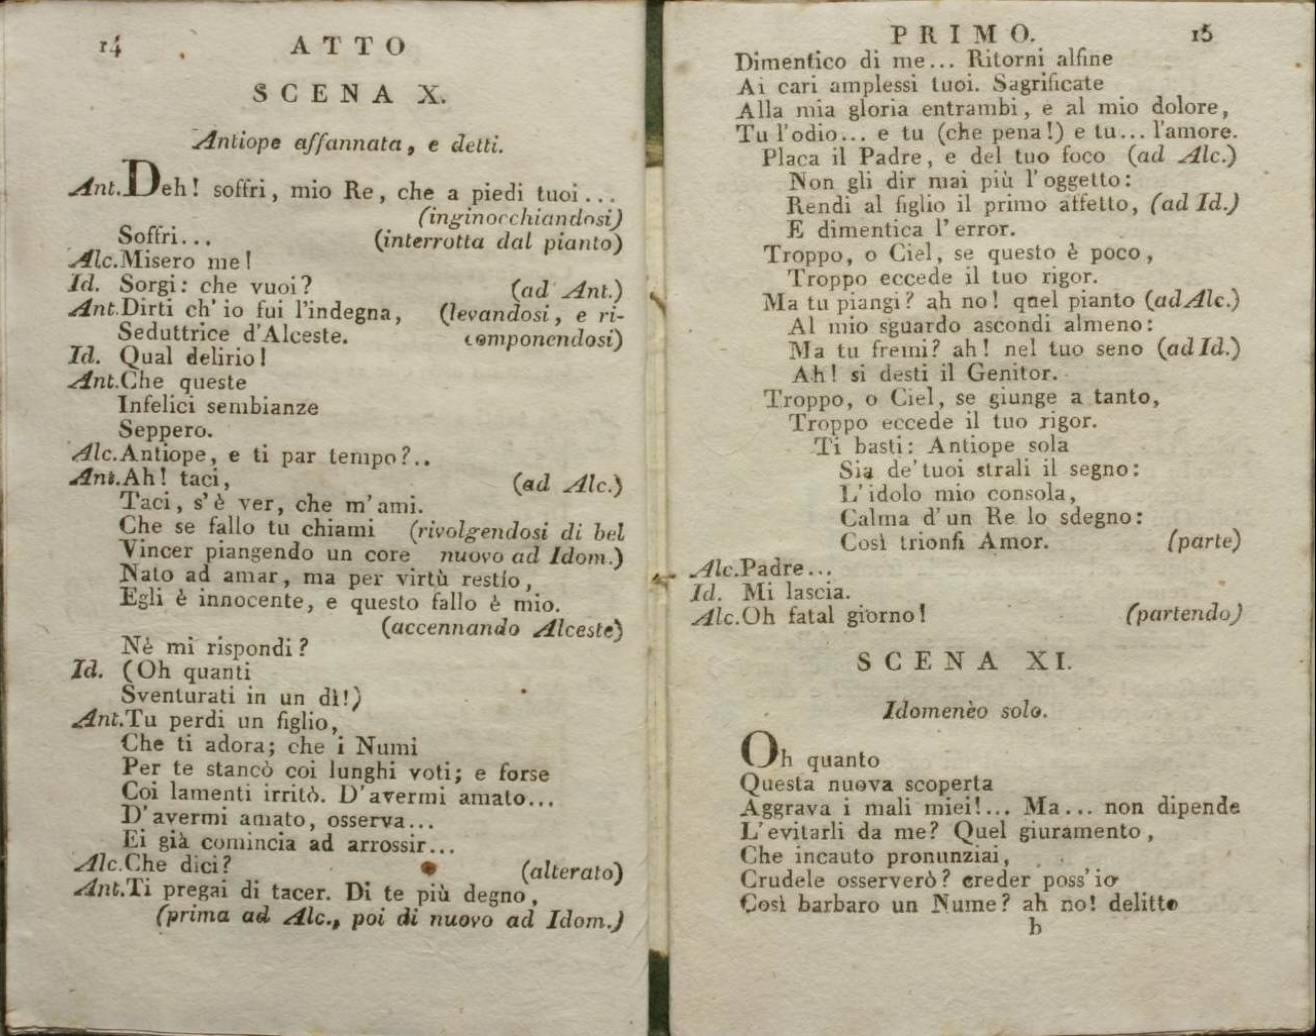 14 ATTO
SCENA X.
Antiope affannata, e detti.
Ant. Deh! soffri, mio Re, che a piedi tuoi...
(inginocchiandosi)
Soffri... (interrotta dal pianto)
Alc. Misero me!
Id. Sorgi: che vuoi? (ad Ant.)
Ant. Dirti ch' io fui l'indegna, (levandosi, e ri-
Seduttrice d'Alceste. componendosi)
Id. Qual delirio!
Ant. Che queste
Infelici sembianze
Seppero.
Alc. Antiope, e ti par tempo?..
Ant. Ah! taci, (ad Alc.)
Taci, s'è ver, che m'ami.
Che se fallo tu chiami (rivolgendosi di bel
Vincer piangendo un core nuovo ad Idom.)
Nato ad amar, ma per virtù restío,
Egli è innocente, e questo fallo è mio.
(accennando Alceste)
Nè mi rispondi?
Id. (Oh quanti
Sventurati in un dì!)
Ant. Tu perdi un figlio,
Che ti adora; che i Numi
Per te stancò coi lunghi voti; e forse
Coi lamenti irritò. D'avermi amato...
D'avermi amato, osserva...
Ei già comincia ad arrossir...
Alc. Che dici? (alterato)
Ant. Ti pregai di tacer. Di te più degno,
(prima ad Alc., poi di nuovo ad Idom.)
PRIMO. 15
Dimentico di me... Ritorni alfine
Ai cari amplessi tuoi. Sagrificate
Alla mia gloria entrambi, e al mio dolore,
Tu l'odio... e tu (che pena!) e tu... l'amore.
Placa il Padre, e del tuo foco (ad Alc.)
Non gli dir mai più l'oggetto:
Rendi al figlio il primo affetto, (ad Id.)
E dimentica l'error.
Troppo, o Ciel, se questo è poco,
Troppo eccede il tuo rigor.
Ma tu piangi? ah no! quel pianto (ad Alc.)
Al mio sguardo ascondi almeno:
Ma tu fremi? ah! nel tuo seno (ad Id.)
Ah! si desti il Genitor.
Troppo, o Ciel, se giunge a tanto,
Troppo eccede il tuo rigor.
Ti basti: Antiope sola
Sia de'tuoi strali il segno:
L'idolo mio consola,
Calma d'un Re lo sdegno:
Così trionfi Amor. (parte)
Alc. Padre...
Id. Mi lascia.
Alc. Oh fatal giorno! (partendo)
SCENA XI.
Idomenèo solo.
Oh quanto
Questa nuova scoperta
Aggrava i mali miei!... Ma... non dipende
L'evitarli da me? Quel giuramento,
Che incauto pronunziai,
Crudele osserverò? creder poss'io
Così barbaro un Nume? ah no! delitto
b